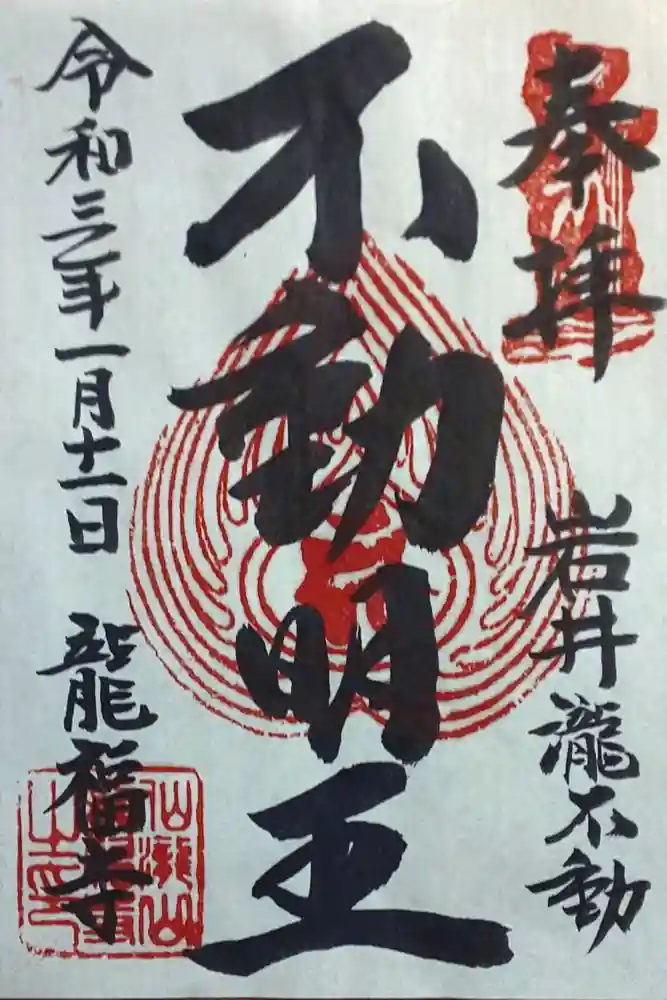 奉拝
岩井瀧不動
不動明王
令和三年一月十一日
龍福寺